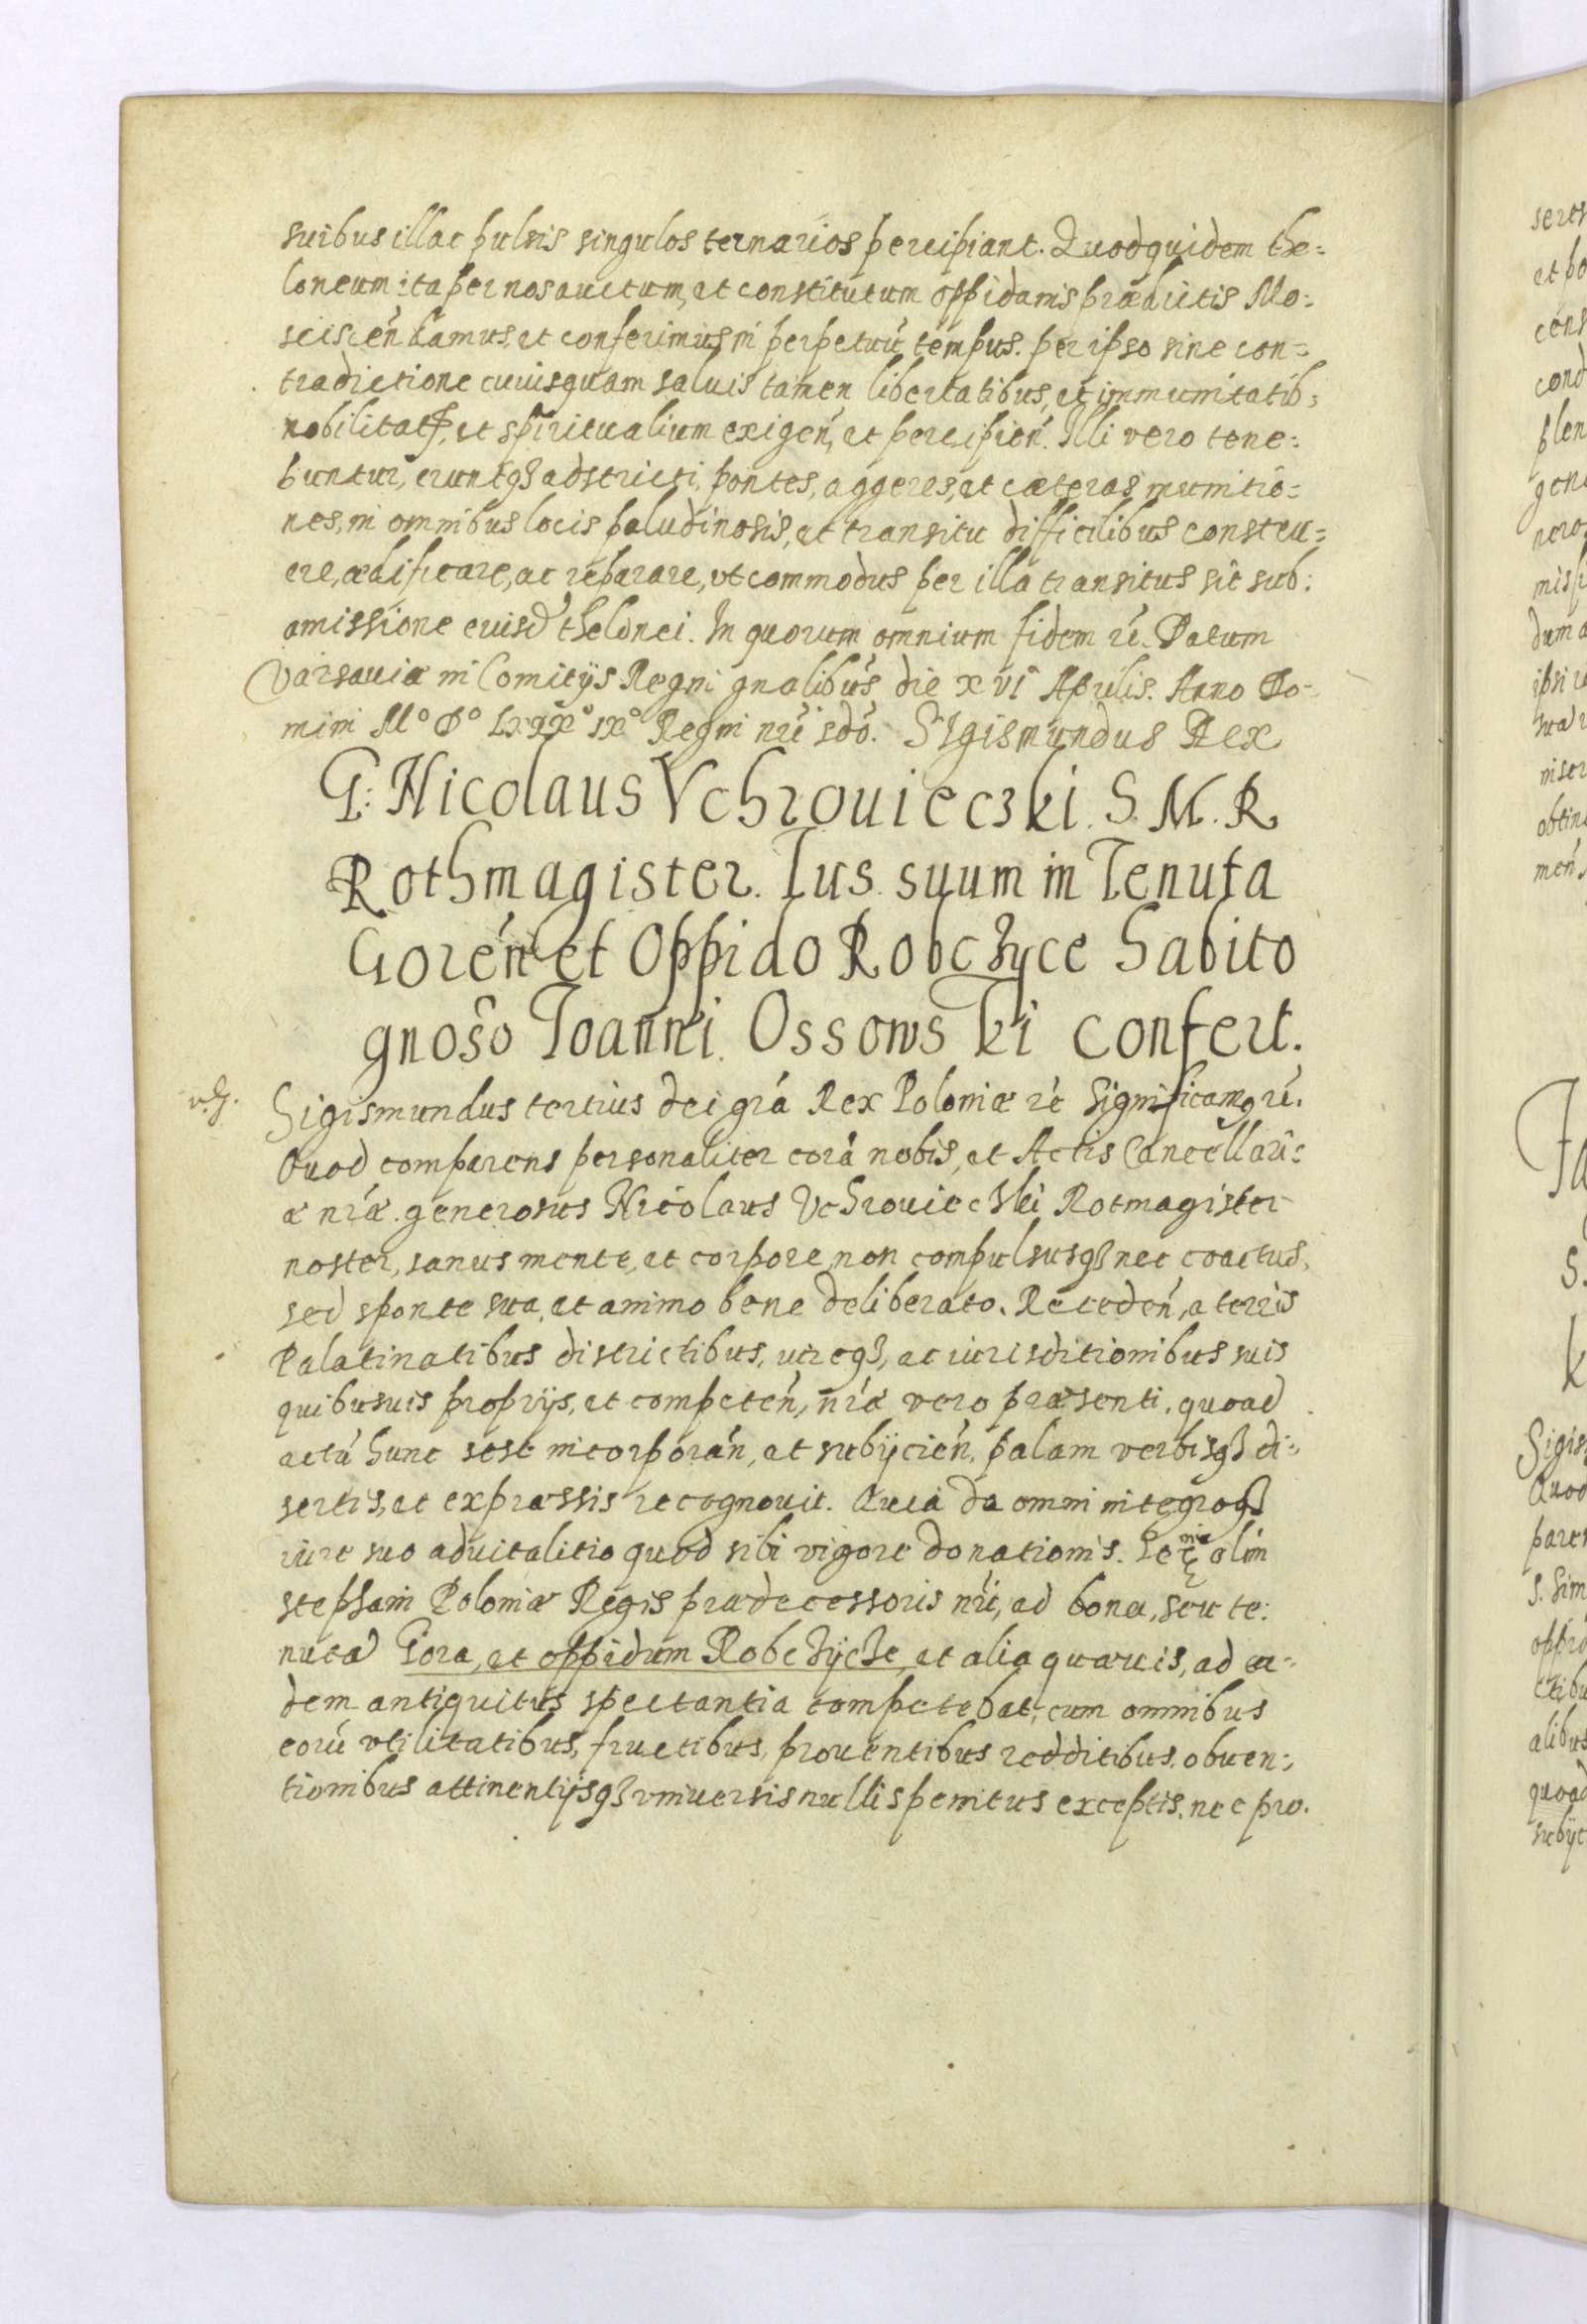 suibus illac pulsis singulos ternarios percipiant. Quodquidem the=
loneum ita per nos auctum, et constitutum oppidanis prædictis Mo=
sciscen̄ damus, et conferimus in perpetuū tempus. per ipso sine con=
tradictione cuiusquam saluis tamen libertatibus, et immunitatib;
nobilitat, et spiritualium exigen̄, et percipien̄. Illi vero tene=
buntur, eruntq3 adstricti, pontes, aggeres, et cæteras munitio=
nes, in omnibus locis paludinosis, et transitu difficilibus constru=
ere, ædificare, ac reparare, vt commodus per illa transitus sit sub:
amissione eiusd̄ thelonei. In quorum omnium fidem rē. Datum
Varsauiæ in Comitijs Regni gnalibus, die xvi° Aprilis. Anno Do=
mini M° D° Lxxx° ix° Regni nrī sdō. Sigismundus Rex
G: Nicolaus Vchrouieczki. S. M. R
Rothmagister. Ius suum in Tenuta
Goren̄ et Oppido Robczyce habito
gnoso Ioanni Ossowski confert.
v.G.
Sigismundus tertius dei grā Rex Poloniæ rē Significamq rē.
Quod comparens personaliter corā nobis, et Actis Cancellari=
æ nræ. generosus Nicolaus Vchrouieczki Rotmagister
noster, sanus mente, et corpore, non compulsusq3 nec coactus,
sed sponte sua, et animo bene deliberato. Receden̄, a terris
Palatinatibus districtibus, viregq3, ac iurisditionibus suis
quibusuis proprijs, et competen̄, nræ vero præsenti, quoad
actū hunc sese incorporan̄, et subijcien̄, palam verbisq3 di=
sertis, et expressis recognouit. Quia de omni integroq3
iure suo aduitalitio quod sibi vigore donationis. Seᵐⁱᵃᵉ olim
stephani Poloniæ Regis prædecessoris nrī, ad bona, seu te:
nutā Gora, et oppidum Robczycze, et alia quævis, ad ea=
dem antiquitus spectantia competebat, cum omnibus
eorū vtilitatibus, fructibus, prouentibus redditibus, obuen=
tionibus attinentijsq3 vniuersis nullis penitus exceptis. nec pro.